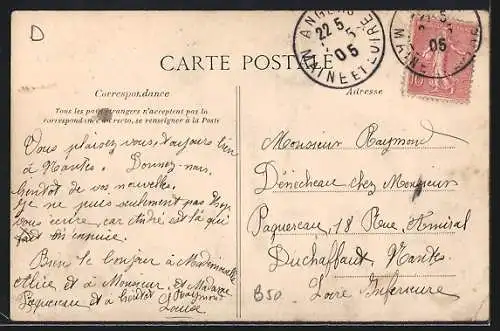 D
ANGERS
22 5
5
05
MAINE ET LOIRE
22 5
05
MAINE
10
CARTE POSTALE
Correspondance
Adresse
Tous les pays étrangers n'acceptent pas la
correspondance au recto, se renseigner à la Poste
Vous plaisez vous toujours bien
à Nantes. Donnez-nous
bientôt de vos nouvelles.
Je ne puis seulement pas
vous écrire, car André est là qui
m'ennuie.
Bien le bonjour à Mademoiselle
Alice et à Monsieur et Madame
Paquereau et à bientôt Raymond
Louise
Monsieur Raymond
Dénécheau chez Monsieur
Paquereau, 18 Rue, Amiral
Duchaffaut Nantes
B50. Loire Inférieure